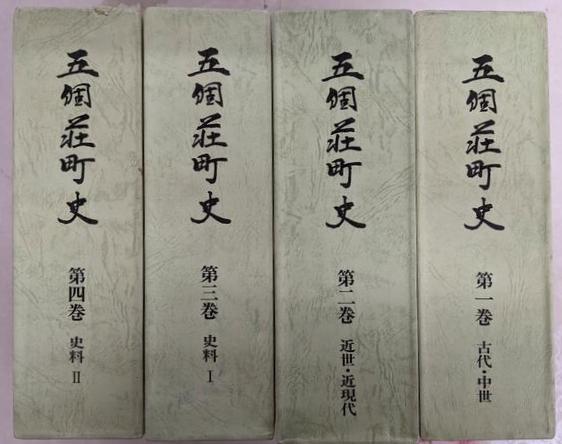 五個荘町史
第一巻 古代・中世
五個荘町史
第二巻 近世・近現代
五個荘町史
第三巻 史料 I
五個荘町史
第四巻 史料 II